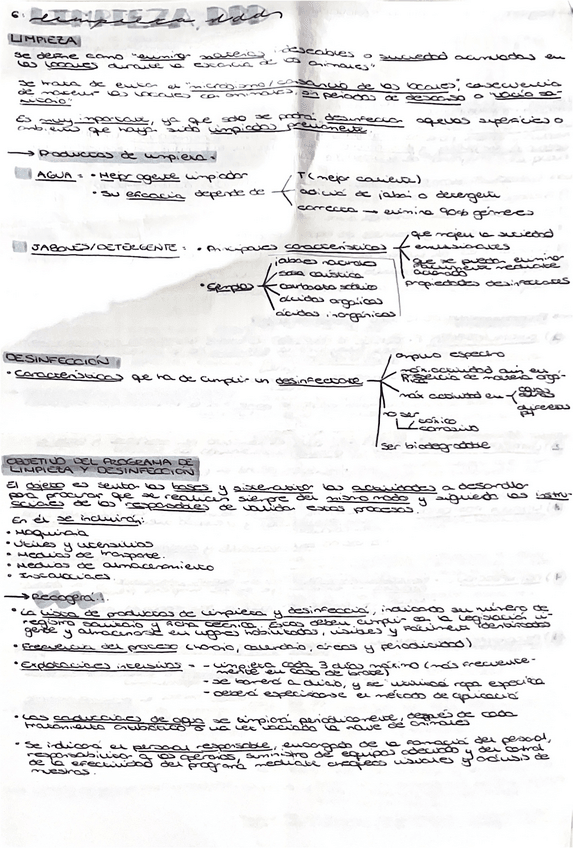 6. LIMPIEZA, DDD
LIMPIEZA
Se define como "eliminar materias indeseables o suciedad acumuladas en
los locales durante la estancia de los animales"
Se trata de evitar el "microbismo / cansancio de los locales", consecuencia
de mantener los locales con animales, sin periodos de descanso o vacío sa-
nitario"
Es muy importante, ya que solo se podrá desinfectar aquellas superficies o
ambientes que hayan sido limpiadas previamente.
→ Productos de limpieza.
AGUA: • Mejor agente limpiador
• Su eficacia depende de
T (mejor caliente)
adición de jabón o detergente
correcta → elimina 90% gérmenes
JABONES/DETERGENTE: • Principales características
que mojen la suciedad
emulsionantes
que se puedan eliminar
fácilmente mediante
aclarado
propiedades desinfectantes
• Ejemplos
jabones naturales
sosa caústica
carbonato sódico
ácidos orgánicos
ácidos inorgánicos
DESINFECCIÓN
• Características que ha de cumplir un desinfectante
amplio espectro
máx. actividad aún en
presencia de materia orgá-
máx actividad en
diferentes
pH
no ser
tóxico
corrosivo
ser biodegradable
OBJETIVO DEL PROGRAMA DE
LIMPIEZA Y DESINFECCIÓN
El objeto es sentar las bases y sistematizar las actividades a desarrollar
para procurar que se realicen siempre del mismo modo y siguiendo las instru-
cciones de los responsables de validar estos procesos.
En él se incluirán:
• Maquinaria
• Útiles y utensilios
• Medios de transporte.
• Medios de almacenamiento
• Instalaciones.
→ Recogerá:
• La lista de productos de limpieza y desinfección, indicando su número de
registro sanitario y ficha técnica. Estos deben cumplir con la legislación vi-
gente y almacenarse en lugares habilitados, visibles y fácilmente identificados
• Frecuencia del proceso (horario, calendario, áreas y periodicidad)
• Explotaciones intensivas = - limpieza cada 3 días máximo (más frecuente-
mente en caso de brote)
- se barrerá a diario, y se utilizará ropa específica
- deberá especificarse el método de aplicación
• Las conducciones de agua se limpiará periódicamente, después de cada
tratamiento antibiótico o una vez vaciado la nave de animales
• Se indicará el personal responsable, encargado de la formación del personal,
responsabilizar a los operarios, suministro de equipos adecuado y del control
de la efectividad del programa mediante chequeos visuales y análisis de
muestras.